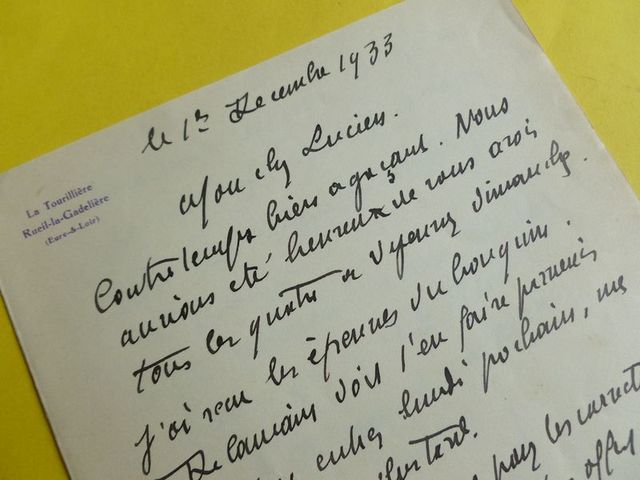 La Tourillière
Rueil-la-Gadelière
(Eure-&-Loir)
le 1er Decembre 1933
Mon cher Lucien.
Contretemps bien agaçant. Nous
aurions été heureux de vous avoir
tous les quatre a déjeuner dimanche.
J'ai reçu les épreuves du bouquin.
Delamain doit t'en faire
lundi prochain, me
pour les